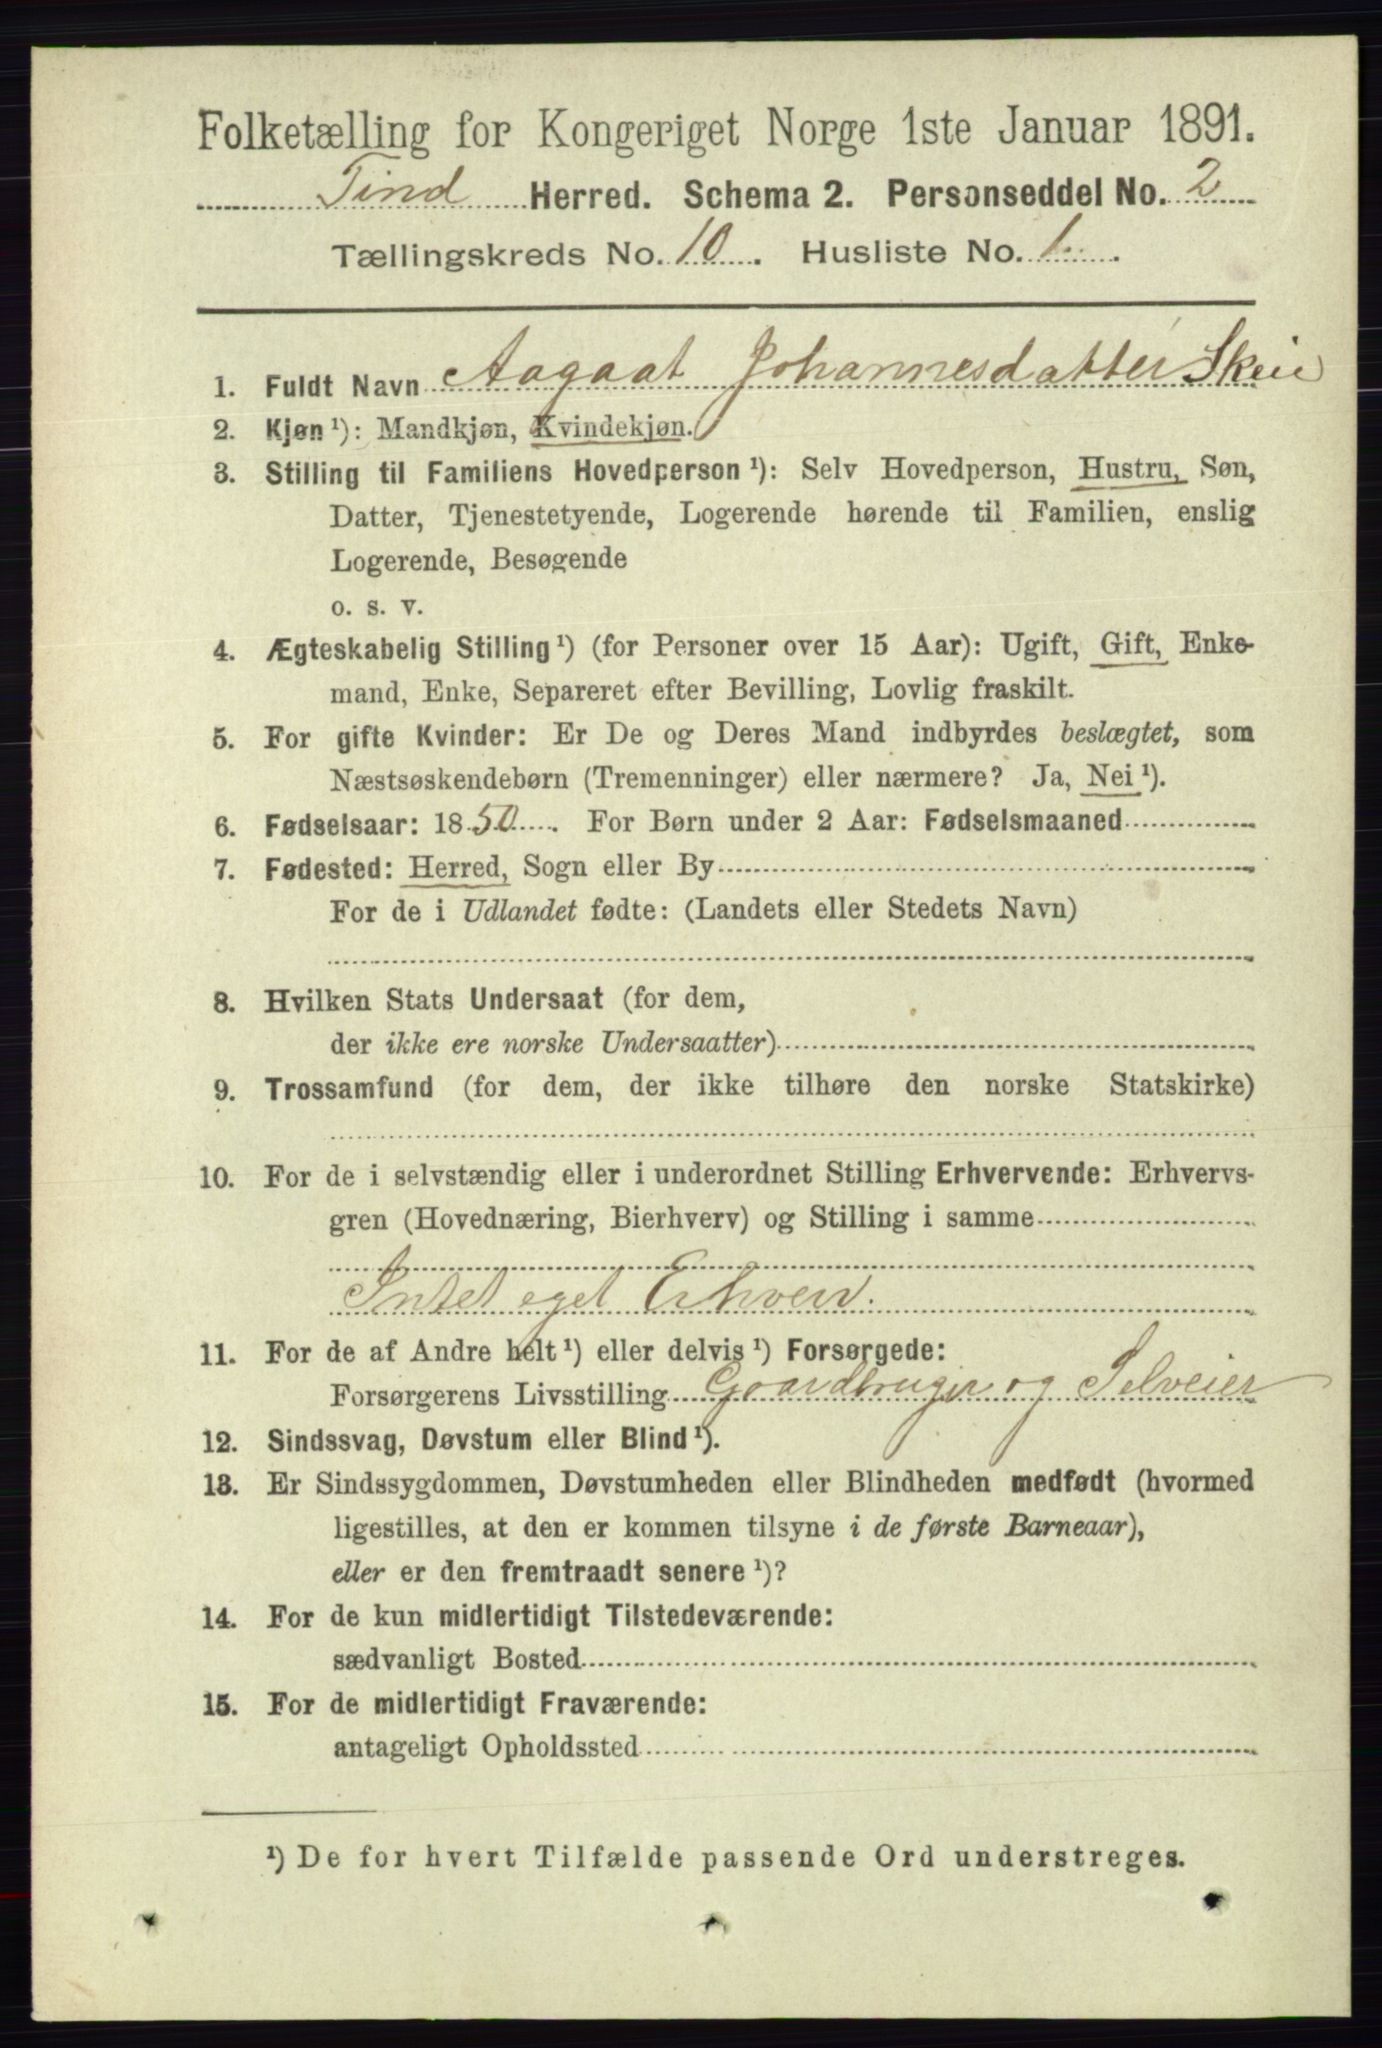 Folketælling for Kongeriget Norge 1ste Januar 1891.
Tind Herred. Schema 2. Personseddel No. 2
Tællingskreds No. 10. Husliste No. 1.
1. Fuldt Navn Aagaat Johannesdatter Skeie
2. Kjøn ¹): Mandkjøn, Kvindekjøn.
3. Stilling til Familiens Hovedperson ¹): Selv Hovedperson, Hustru, Søn,
Datter, Tjenestetyende, Logerende hørende til Familien, enslig
Logerende, Besøgende
o. s. v.
4. Ægteskabelig Stilling ¹) (for Personer over 15 Aar): Ugift, Gift, Enke-
mand, Enke, Separeret efter Bevilling, Lovlig fraskilt.
5. For gifte Kvinder: Er De og Deres Mand indbyrdes beslægtet, som
Næstsøskendebørn (Tremenninger) eller nærmere? Ja, Nei ¹).
6. Fødselsaar: 1850. For Børn under 2 Aar: Fødselsmaaned
7. Fødested: Herred, Sogn eller By
For de i Udlandet fødte: (Landets eller Stedets Navn)
8. Hvilken Stats Undersaat (for dem,
der ikke ere norske Undersaatter)
9. Trossamfund (for dem, der ikke tilhøre den norske Statskirke)
10. For de i selvstændig eller i underordnet Stilling Erhvervende: Erhvervs-
gren (Hovednæring, Bierhverv) og Stilling i samme
Intet eget Erhverv.
11. For de af Andre helt ¹) eller delvis ¹) Forsørgede:
Forsørgerens Livsstilling Gaardbruger og Selveier
12. Sindssvag, Døvstum eller Blind ¹).
13. Er Sindssygdommen, Døvstumheden eller Blindheden medfødt (hvormed
ligestilles, at den er kommen tilsyne i de første Barneaar),
eller er den fremtraadt senere ¹)?
14. For de kun midlertidigt Tilstedeværende:
sædvanligt Bosted
15. For de midlertidigt Fraværende:
antageligt Opholdssted
¹) De for hvert Tilfælde passende Ord understreges.